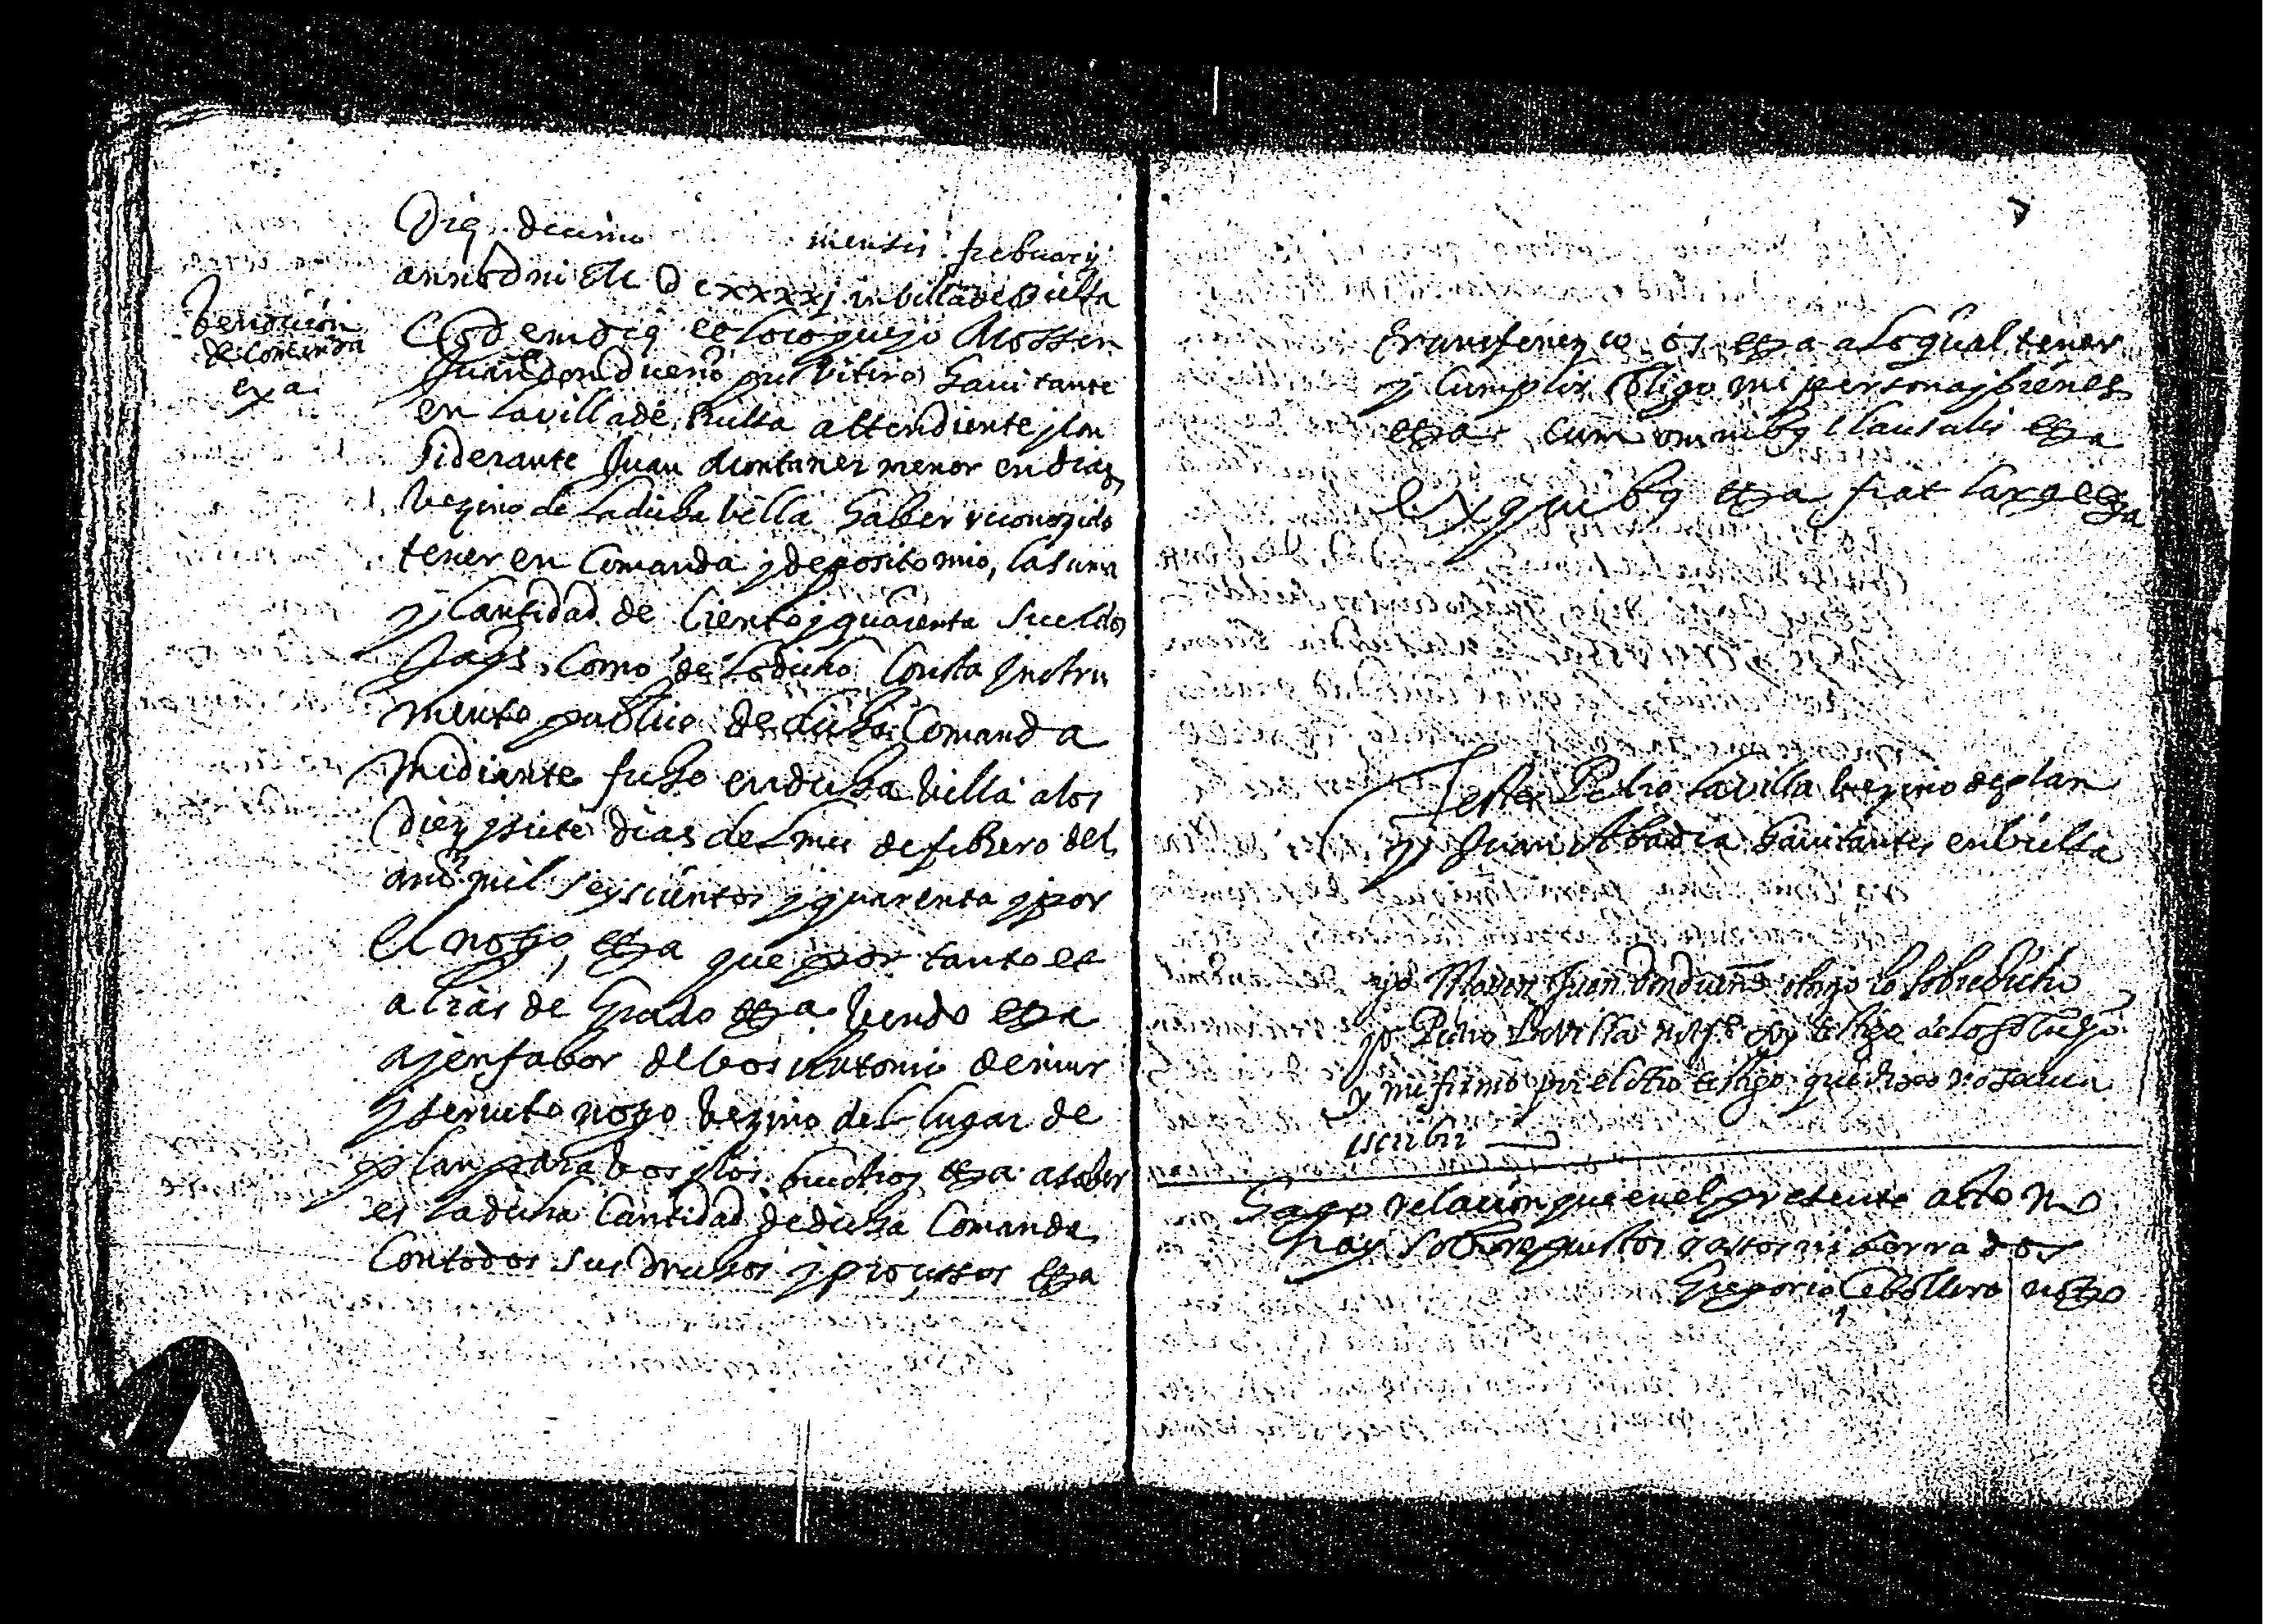 Die decimo mensis frebuarij
anno Dni M DCxxxxj in villa de Bielsa
Vendicion
de Comanda
exa
Eodem die et loco que yo Mossen
Juan Dondueño presbitero hauitante
en la villa de Bielsa attendiente y con
siderante Juan Muntaner menor en dias
vezino de la dicha villa haber reconozido
tener en Comanda y deposito mio, la suma
y Cantidad de Ciento y quarenta sueldos
Jaqs. Como de lo dicho Consta Instru
mento publico de dicha Comanda
mediante fecho en dicha villa a los
diez y siete dias del mes de febrero del
año mil seyscientos y quarenta y por
el noto, etta que por tanto et
alias de Grado etta vendo etta
a y en fabor de vos Antonio de mur
y serveto noto vezino del lugar de
plan para vos y los buestros etta a saber
es la dicha Cantidad de dicha Comanda
Con todos sus drechos y proçessos etta
transferezco os etta a lo qual tener
y Cumplir obligo mi persona y bienes
etta cum omnibq Clausulis etta
Ex quibq etta fiat large etta
Testes Pedro Lavilla vezino de plan
y Juan Abadia hauitantes en Bielsa
yo Mosen Juan Dondueño otorgo lo sobredicho
yo Pedro Lavilla soy testigo de lo sobredicho
y me firmo por el otro testigo que dixo no sabia
escribir
Hago relacion que en el presente acto no
hay sobrepuestos rasos ni borrados
Gregorio Cebollero notto